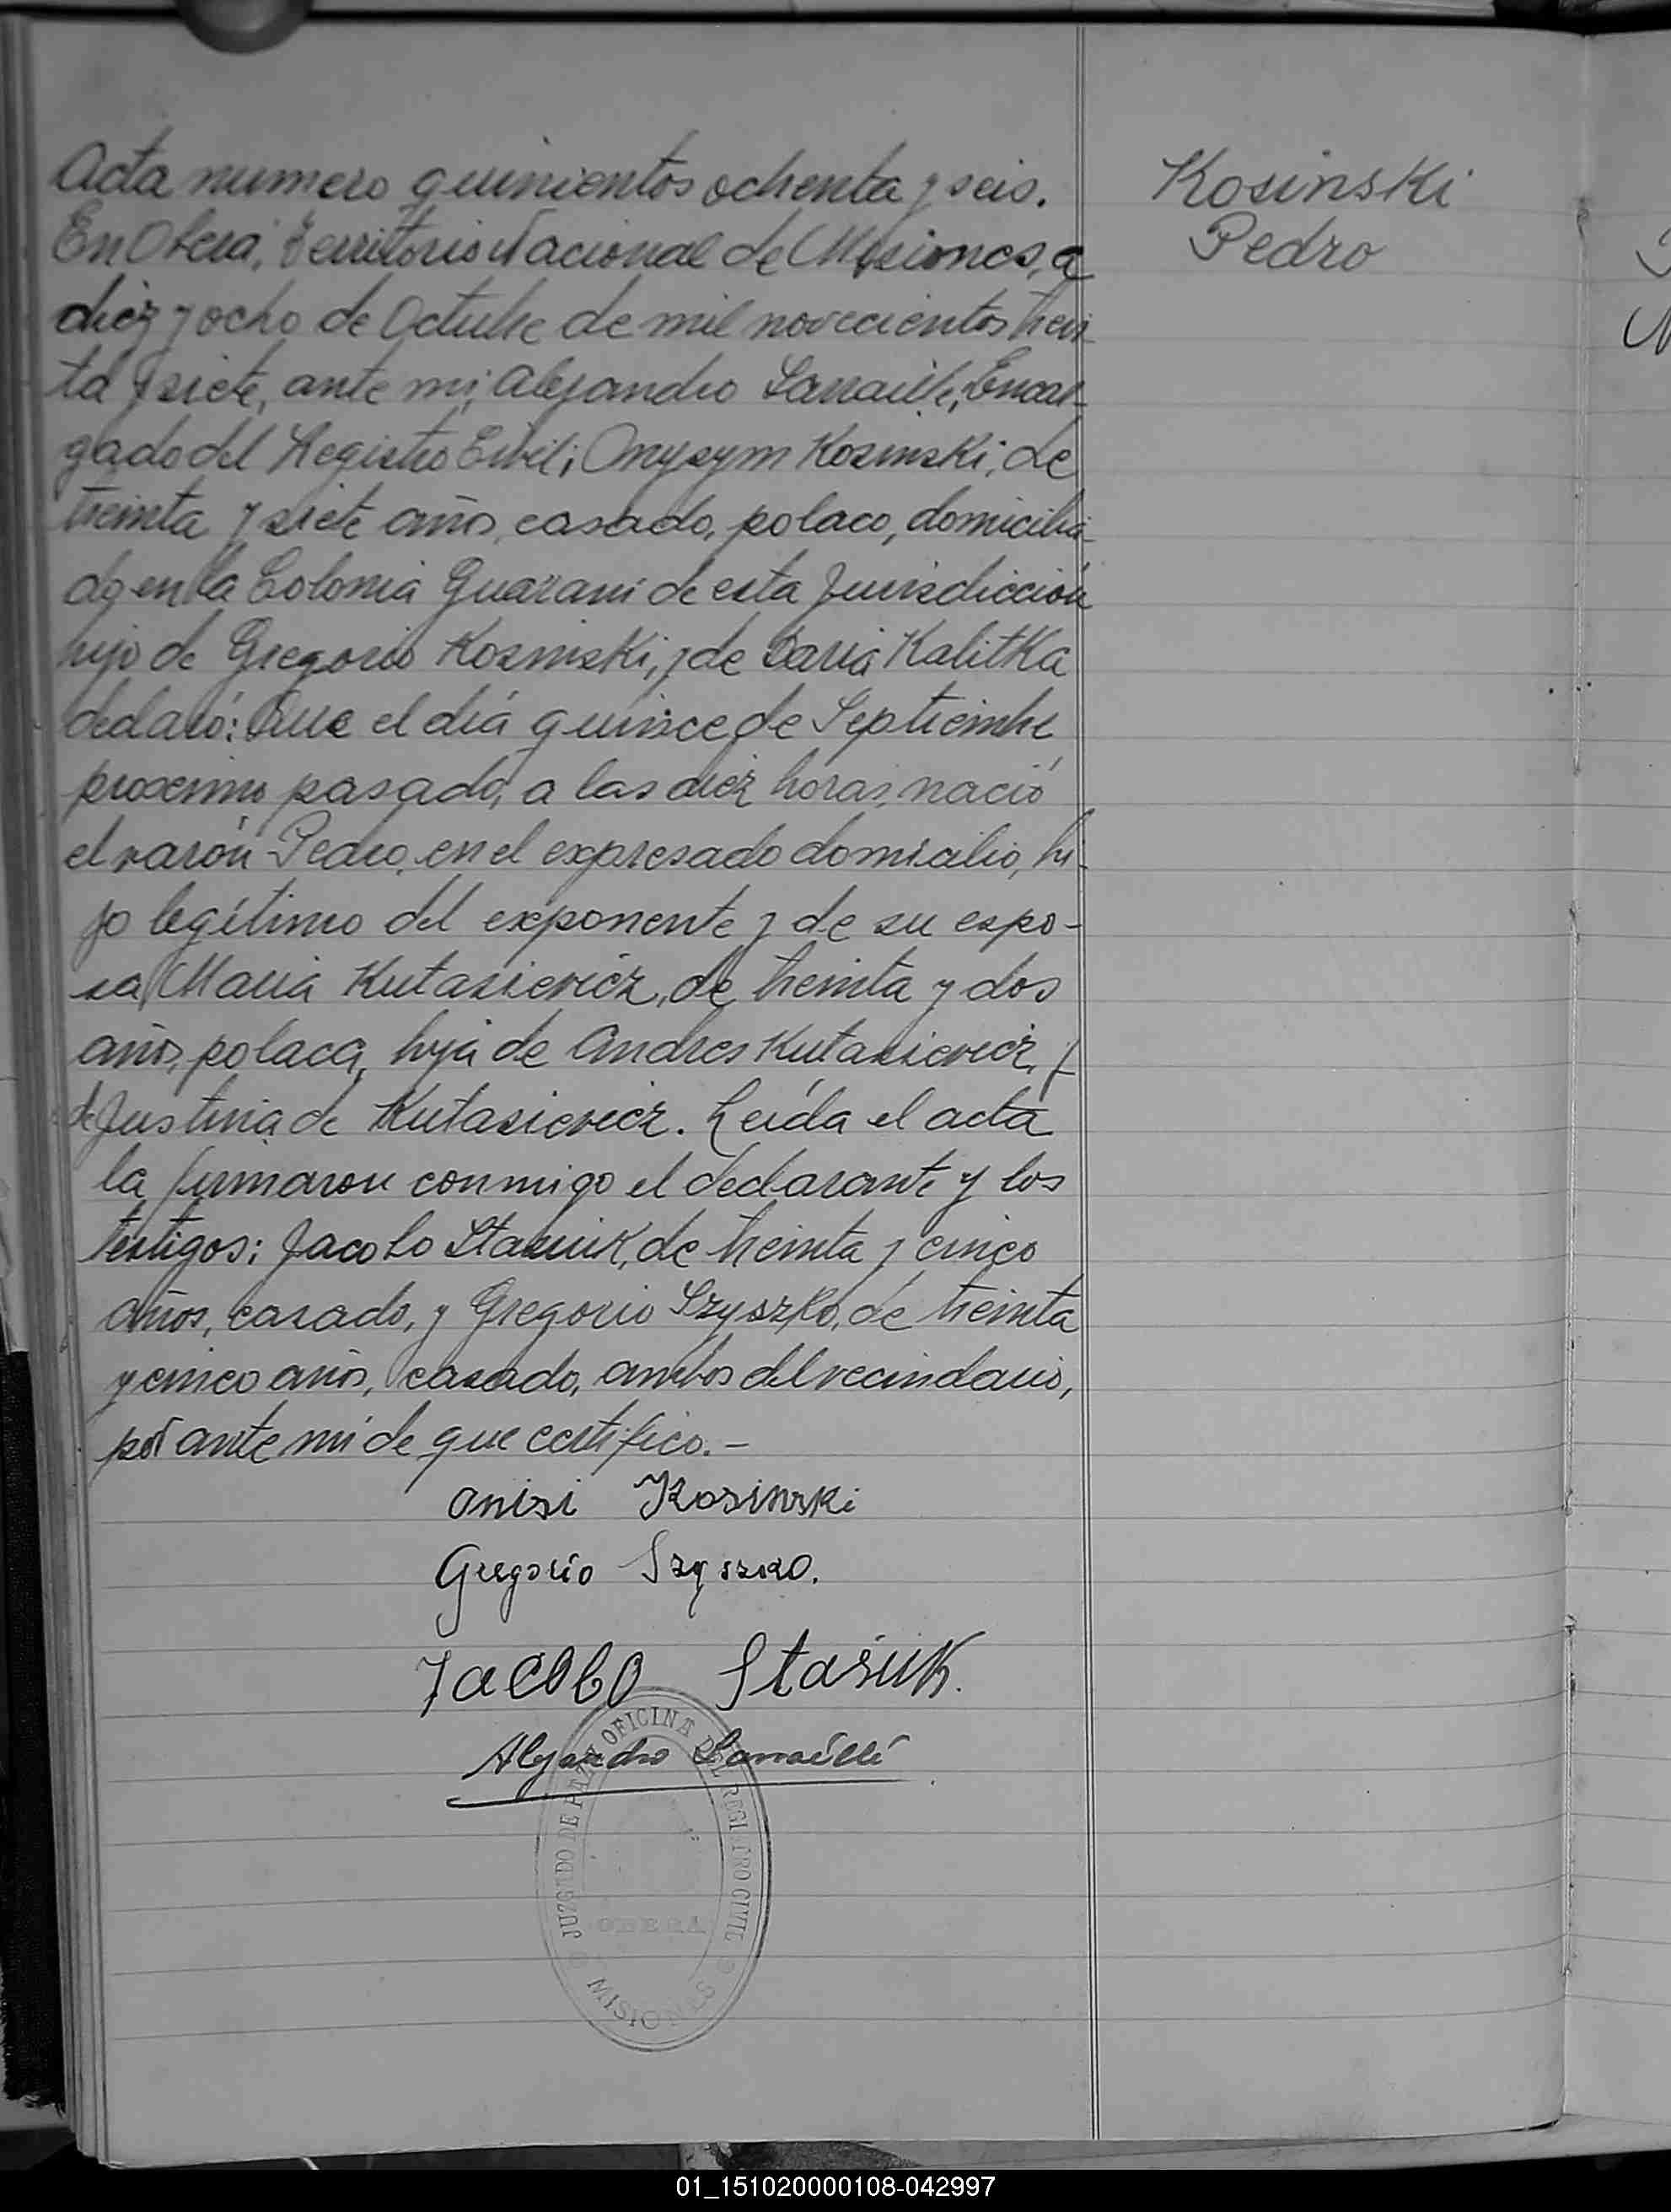 Acta numero quinientos ochenta y seis.
En Oberá, Territorio Nacional de Misiones, a
diez y ocho de Octubre de mil novecientos trein
ta y siete, ante mi, Alejandro Larraillé, Encar-
gado del Registro Civil; Onysym Kosinski, de
treinta y siete años, casado, polaco, domicilia-
do en la Colonia Guarani de esta Jurisdicción
hijo de Gregorio Kosinski, y de Daria Kalitka
declaró: Que el día quince de Septiembre
proximo pasado, a las diez horas, nació
el varón Pedro, en el expresado domicilio, hi-
jo legítimo del exponente y de su espo-
sa Maria Kutasievicz, de treinta y dos
años, polaca, hija de Andres Kutasievicz, y
de Justina de Kutasievicz. Leída el acta
la firmaron conmigo el declarante y los
testigos: Jacobo Stasiuk, de treinta y cinco
años, casado, y Gregorio Szyszko, de treinta
y cinco años, casado, ambos del vecindario,
por ante mi de que certifico.-
Kosinski
Pedro
onisi Kosinski
Gregorio Szyszko.
Jacobo Stasiuk.
Alejandro Larraillé
JUZGADO DE PAZ Y OFICINA DEL REGISTRO CIVIL
OBERA
MISIONES
01_151020000108-042997